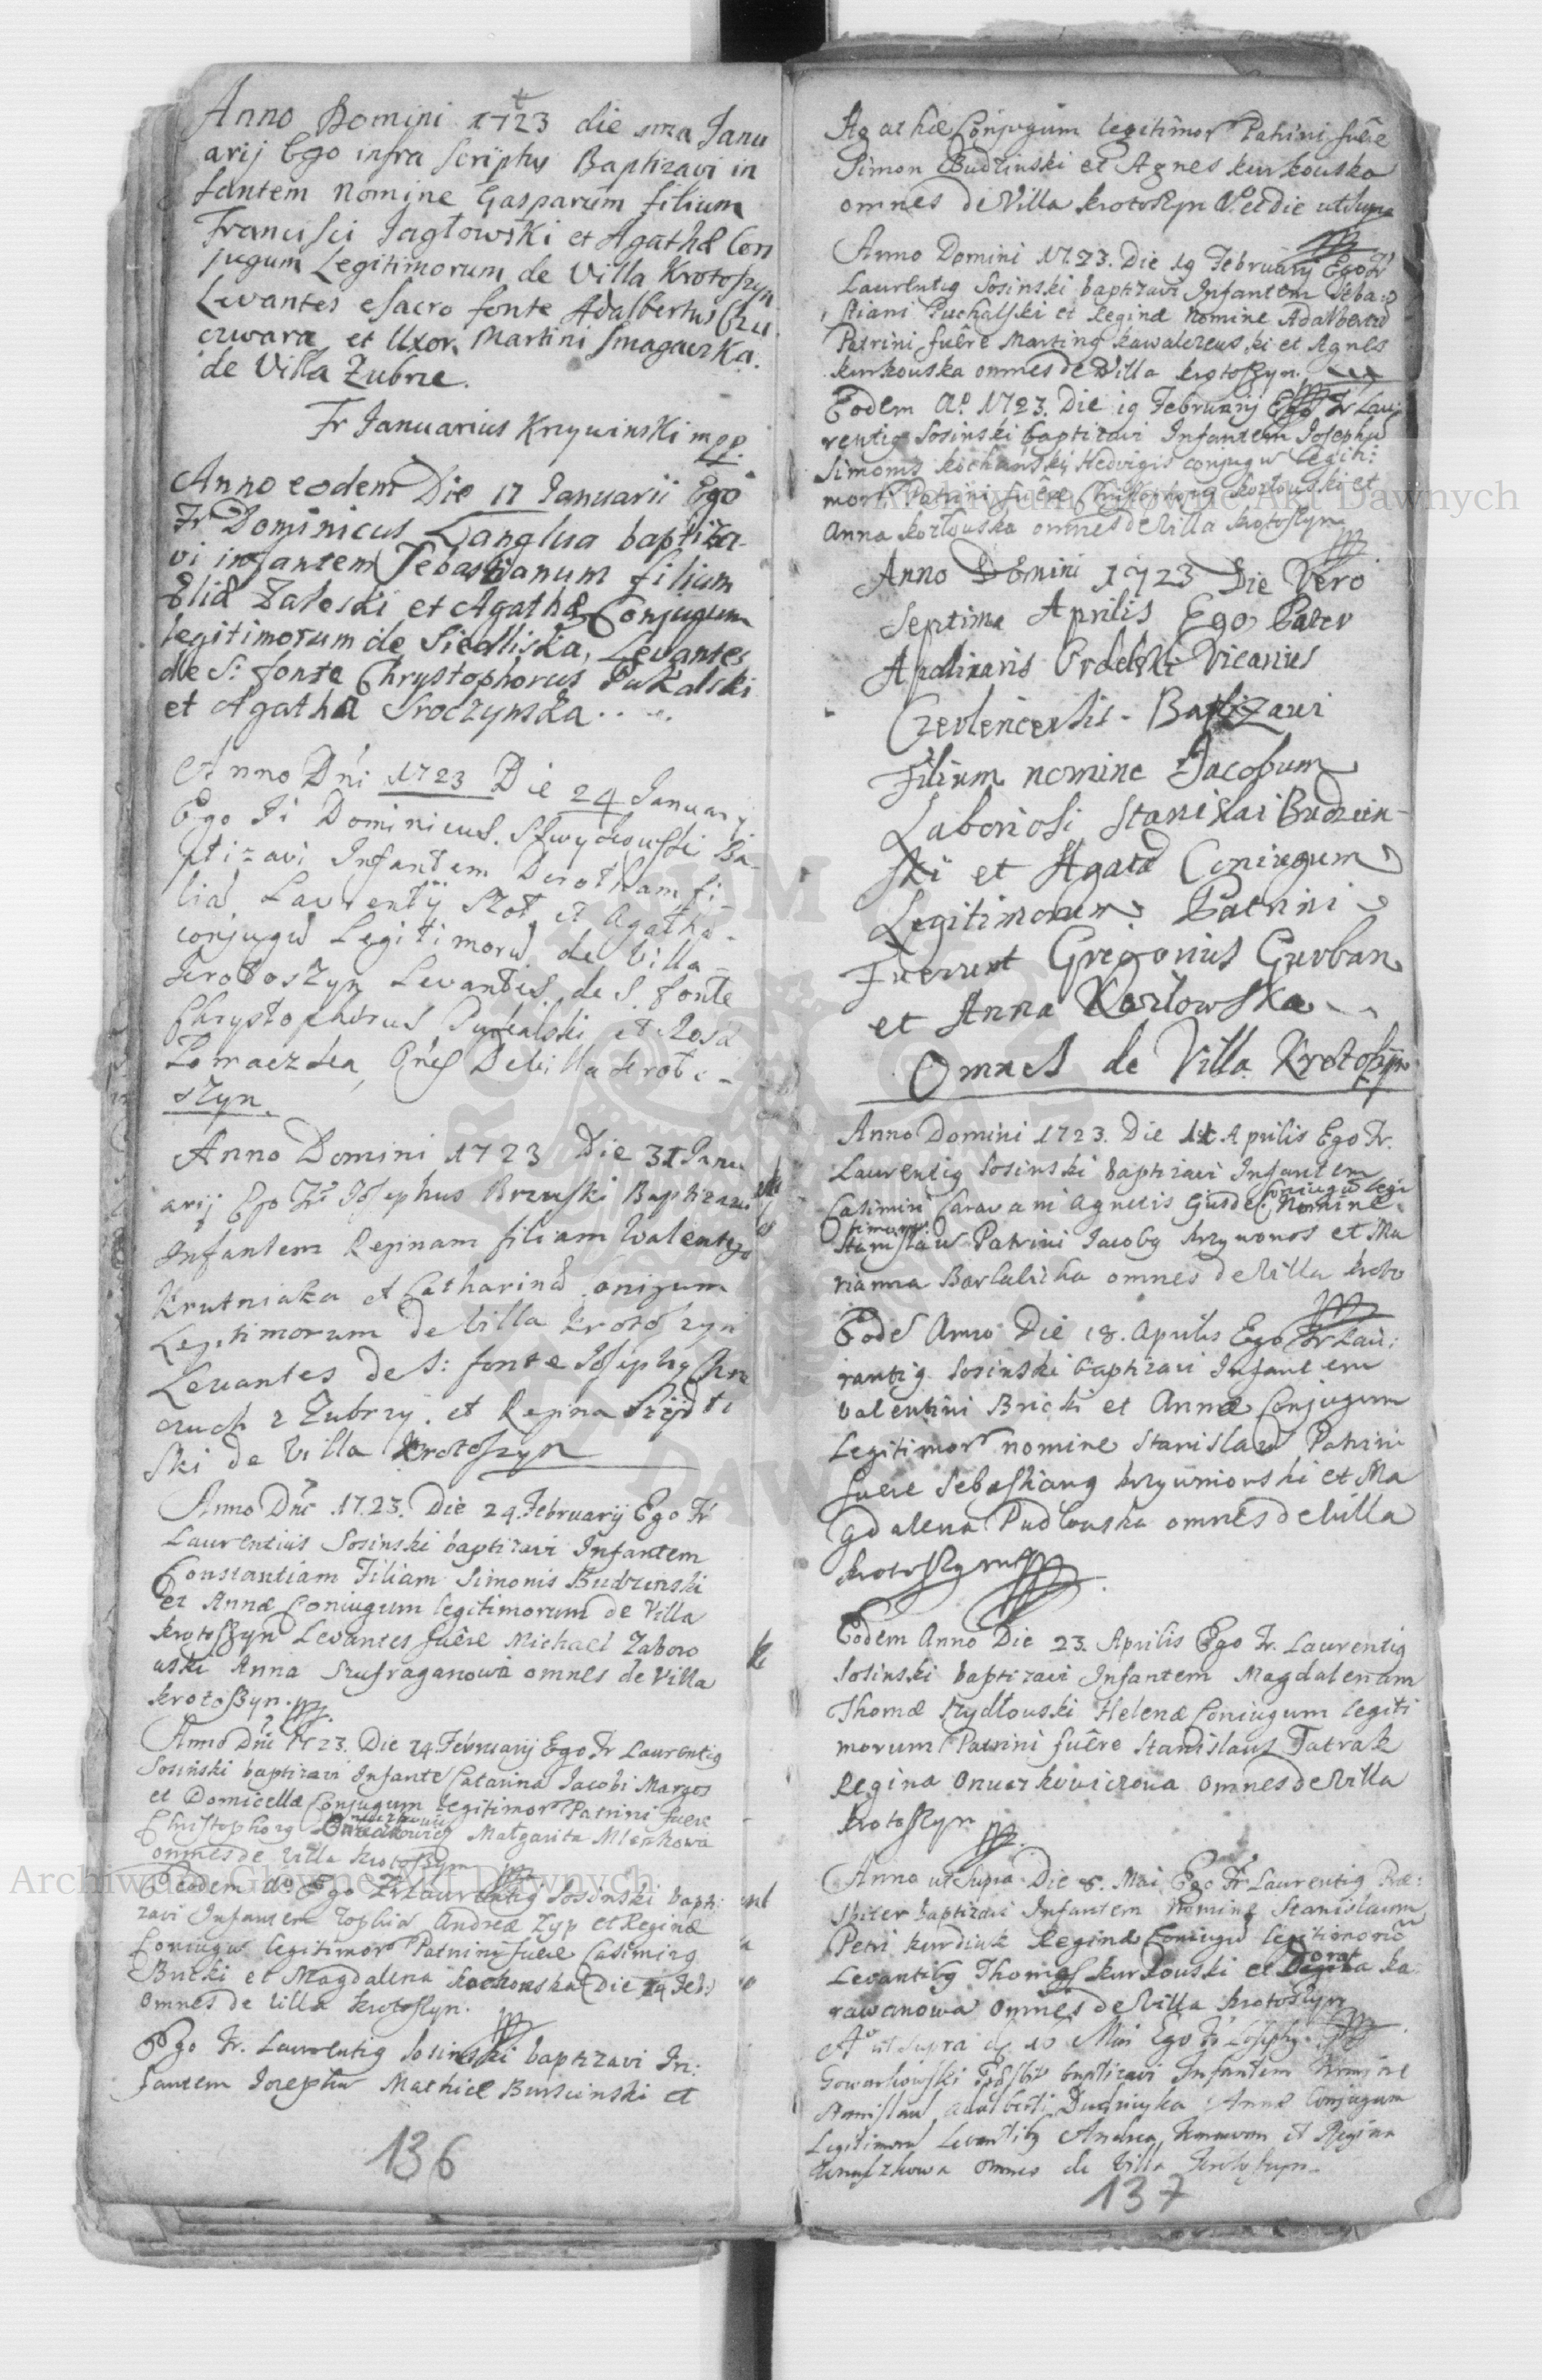 Anno Domini 1723 die 1ma Janu
arij Ego infra scriptus Baptizavi in
fantem nomine Gasparum filium
Francisci Jagłowski et Agathæ Con
jugum Legitimorum de Villa Krotoszyn
Levantes e sacro fonte Adalbertus
et Uxor Martini Smagawska.
de Villa Zubrze.
Fr Januarius Krzywinski mpp.
Anno eodem Die 17 Januarii Ego
Fr Dominicus Langlua baptiza-
vi infantem Sebastianum filium
Eliæ Załoski et Agathæ Conjugum
legitimorum de Siedliska, Levantes
de S. fonte Chrystophorus Pukalski
et Agatha Sroczynska . . .
Anno Dni 1723 Die 24 January
Ego Dominicus Ba-
ptizavi Infantem Dorotham fi-
liã Laurentÿ Szot et Agatha-
conjugũ Legitimorũ de Villa
Krotoszyn Levantes de S. fonte
Chrystophorus Pukalski et Rosa
De Villa Kroto-
szyn.
Anno Domini 1723 Die 31 Janu
arij Ego Fr Josephus Brzuski Baptizavi
Infantem Reginam filiam Walenty
Krutniaka et Catharinæ onigum
Legitimorum de Villa Krotoszyn
Levantes de S: fonte Josephg
czuch z Zubrzy. et Regina
ski de Villa Krotoszyn
Anno Dni 1723. Die 24. February Ego Fr
Laurentius Sosinski baptizavi Infantem
Constantiam Filiam Simonis Budzinski
Et Annæ Coniugum legitimorum de Villa
Krotoszyn Levantes fuêre Michael Zaboro
wski Anna Szufraganowa omnes de Villa
krotoszyn.
Anno Dni 1723. Die 24 February Ego Fr Laurentig
Sosiński baptizavi Infante Catarina Jacobi Margos
et Domicellæ Conjugum legitimor Patrini fuere
Christophorg Małgarita Mlenkowa
omnes de Villa krotoszyn
Eodem do Ego Fr Laurentig Sosinski bapti
zavi Infantem Zophiã Andreæ Zyp et Reginæ
Coniugũ legitimor Patrini fuere Casimirg
Bucki et Magdalena Kochonska (Die 24 Feb:)
omnes de Villa krotoszyn.
Ego Fr. Laurentig Sosinski baptizavi In:
fantem Josephũ Mathiæ et
136
Agathæ Conjugum legitimor Patrini fuêre
Simon Budzinski et Agnes kurkouska
omnes de Villa krotoszyn V. et die ut supra
Anno Domini 1723. Die 19 February Ego Fr
Laurentig Sosinski baptizavi Infantem Seba
stiani Puchalski et Reginæ Nomine Adalbertũ
Patrini fuêre Marting kawalczeuski et Agnes
kurkouska omnes de Villa krotoszyn.
Eodem Ao. 1723. Die 19 February Ego Fr Lau
rentig Sosinski baptizavi Infantem Josephũ
Simonis kochański Hedvigis conjugũ legiti:
mor: Patrini fuêre Christophorg kozłouski et
Anna kozłouska omnes de Villa krotoszyn
Anno Domini 1723 Die Vero
Septima Aprilis Ego Pater
Apolinaris Vicarius
Baptizavi
Filium nomine Jacobum
Laboriosi Stanislai Budzin-
ski et Agatæ Coniregum
Legitimorum Patrini
Fuerunt Gregorius Gurban
et Anna Kozlowska
Omnes de Villa Krotoszyn
Anno Domini 1723. Die 11 Aprilis Ego Fr.
Laurentig Sosinski baptizavi Infantem
Casimiri Caravani Agnetis Coniugũ legi
timor Nomine
Stanislaũ Patrini Jacobg krzywonos et Ma
rianna omnes de Villa kroto
Eodẽ Anno Die 18. Aprilis Ego Fr Lau:
rentig Sosinski baptizavi Infantem
Valentini Bricki et Annæ Conjugum
Legitimor nomine Stanislaũ Patrini
fuere Sebastiang krzywniouski et Ma
gdalena Pudłouska omnes de Villa
krotoszyn
Eodem Anno Die 23. Aprilis Ego Fr. Laurentig
Sosinski baptizavi Infantem Magdalenam
Thomæ Szydłouski Helenæ Coniugum legiti
morum Patrini fuêre Stanislaus Tatrak
Regina omnes de Villa
krotoszyn
Anno ut Supra Die 8. Mai Ego Fr Laurentig Præ:
sbiter baptizavi Infantem Nomine Stanislaum
Petri kurdiuk Reginæ Coniugũ legitimorũ
Levantibg Thomas kurkouski et ka
rawanowa omnes de Villa krotoszyn
Ao ut Supra d. 10 Mai Ego Fr Josephg
Gowarkowski baptizavi Infantem Nomine
Stanislaũ Adalberti Annæ Conjugum
Legitimorũ Levantibg Andrea et Regina
omnes de Villa Krotoszyn.
137
Archiwum Główne Akt Dawnych
Archiwum Główne Akt Dawnych